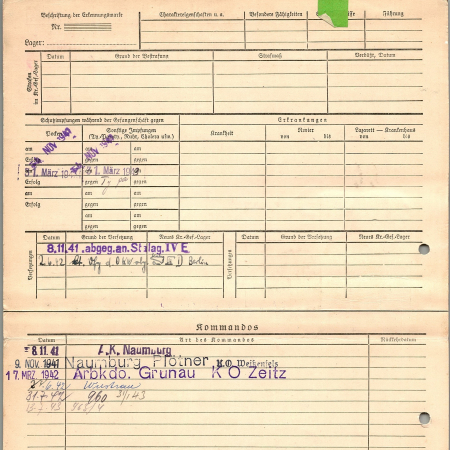 Beschriftung der Erkennungsmarke
Nr.
Lager:
Charaktereigenschaften u. a.
Besondere Fähigkeiten
Führung
Strafen im Kr.-Gef.-Lager
Datum
Grund der Bestrafung
Strafmaß
Verbüßt, Datum
Schutzimpfungen während der Gefangenschaft gegen
Erkrankungen
Pocken
Sonstige Impfungen
(Ty.-Paraty., Ruhr, Cholera usw.)
Krankheit
Revier
von bis
Lazarett — Krankenhaus
von bis
am
am
gegen
NOV 1941
NOV 194
1. März 194
1. März 194
Erfolg
gegen
am
am
gegen
Erfolg
gegen
am
gegen
am
gegen
Versetzungen
Datum
Grund der Versetzung
Neues Kr.-Gef.-Lager
Datum
Grund der Versetzung
Neues Kr.-Gef.-Lager
8.11.41 abgeg. an. Stalag. IV E
2.6.42 d. OKW III D Berlin
Kommandos
Datum
Art des Kommandos
Rückkehrdatum
8.11. 41 A.K. Naumburg
9. NOV. 1941 Naumburg Flötner K.O. Weißenfels
17. MRZ. 1942 Arbkdo. Grunau K O Zeitz
6.42 Wustrau
31.7.42 960 31/1 43
43 965/4